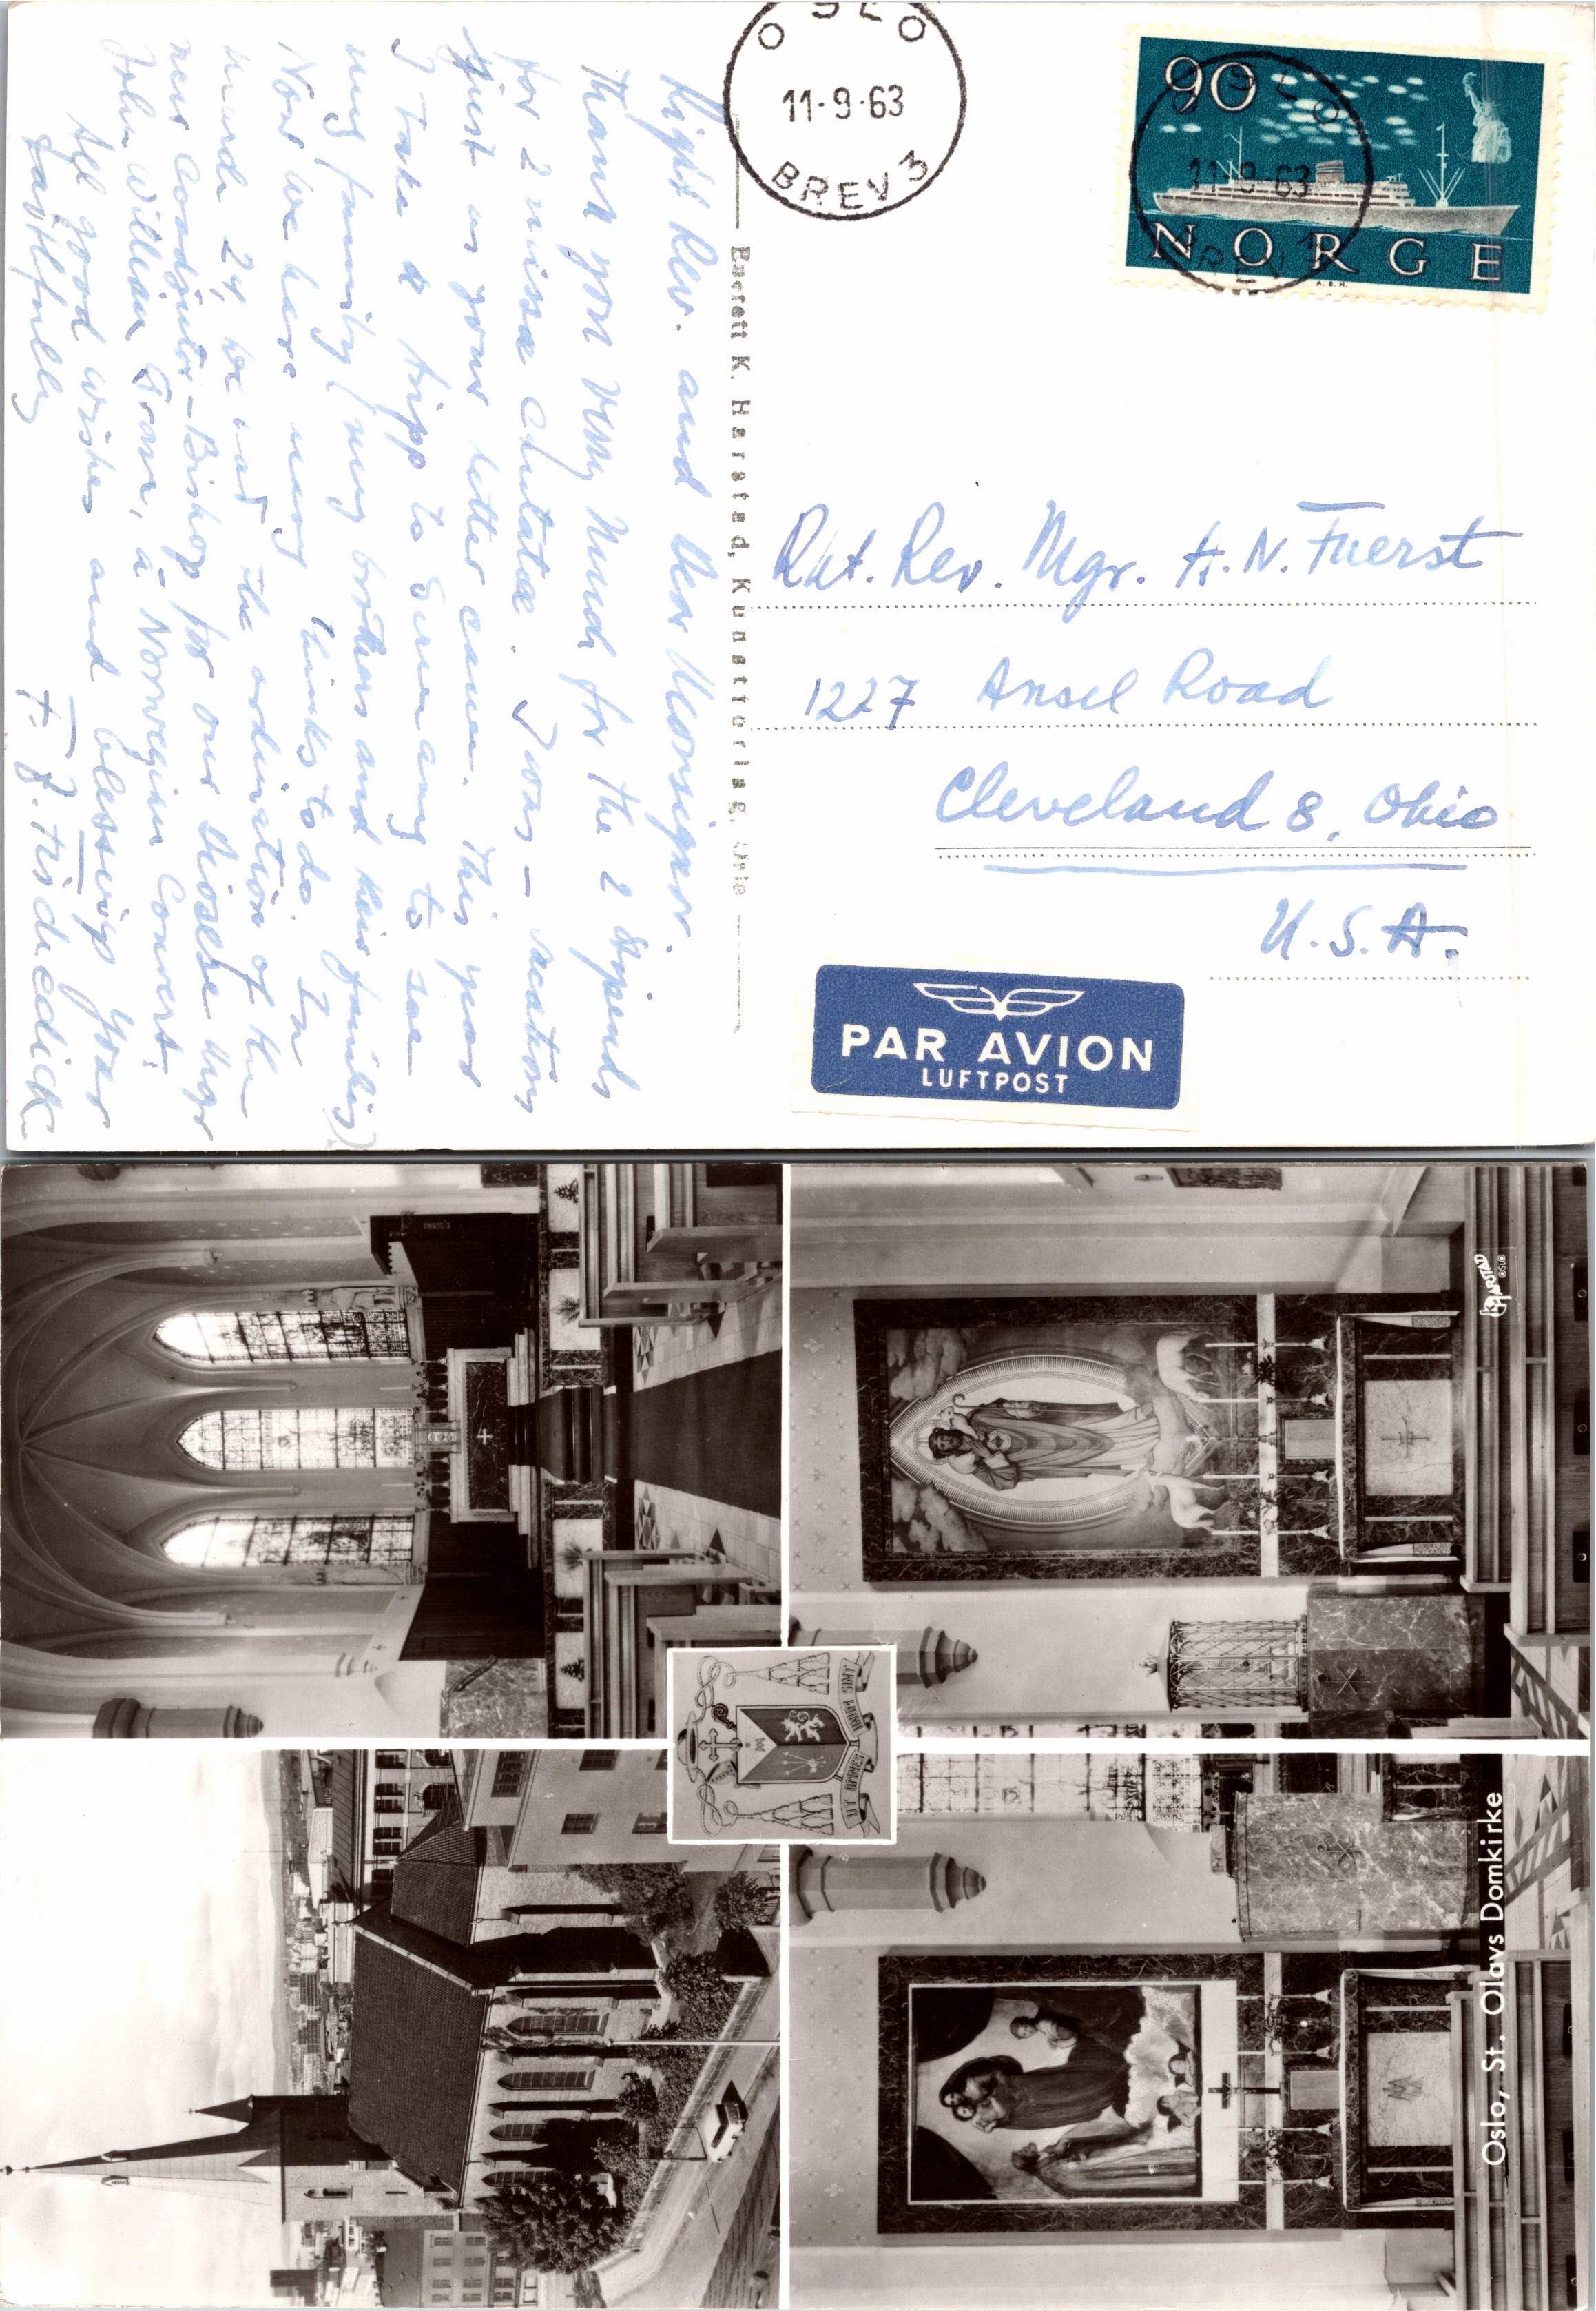 OSLO
11-9-63
BREV 3
90
NORGE
A.B.H.
OSLO
11-9-63
BREV
Right Rev. and dear Monsignor.
Thank you very much for the 2 stipends
for 2 missae cantatae. I was -
just as your letter came. This year
I take a tripp to Germany to see
my family (my brothers and their family)
Now we have many thinks to do. In
24, we had the ordination of the
new Coadjutor-Bishop for our diocese Msgr
John Willem Gran, a Norwegian Convert.
All good wishes and blessings Your
faithfully
F. J. Fischedick
Enerett K. Harstad, Kunstforlag, Oslo
Rht. Rev. Mgr. A. N. Fuerst
1227 Ansel Road
Cleveland 8, Ohio
U.S.A.
PAR AVION
LUFTPOST
HARSTAD
OSLO
UT OMNES UNUM SINT
Oslo, St. Olavs Domkirke